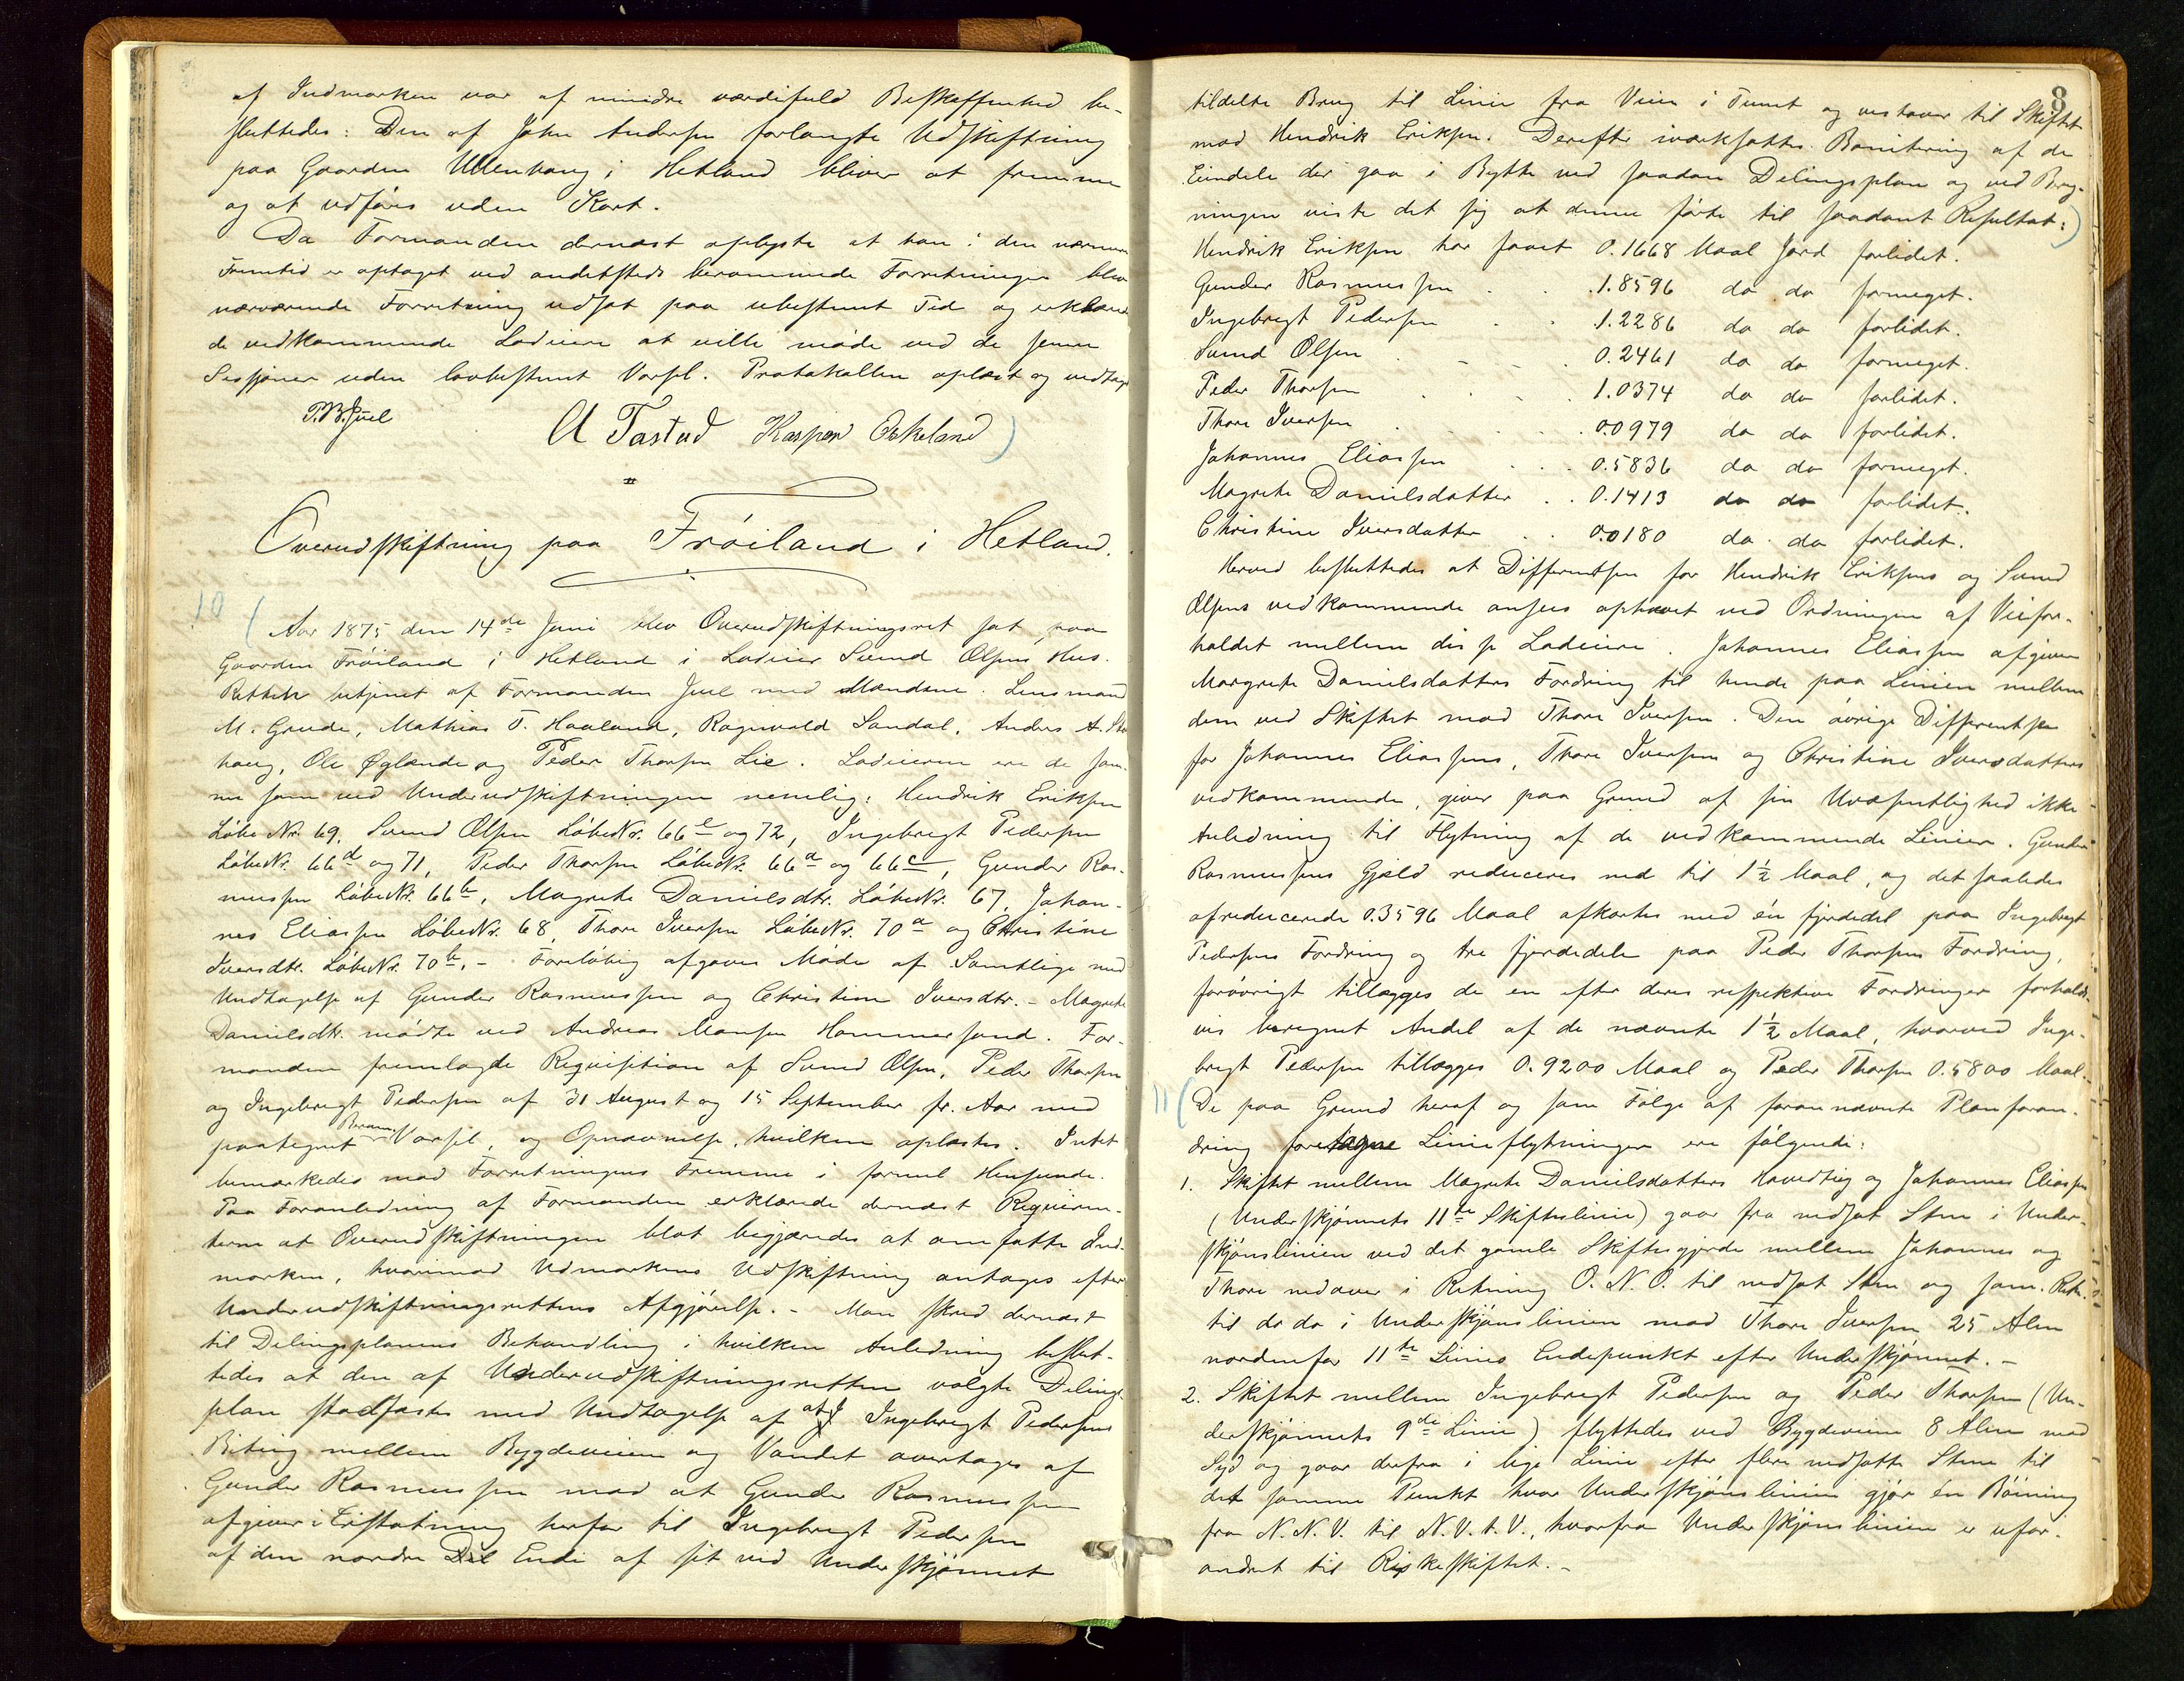 af Indmarken var af mindre værdifuld Beskaffenhed be-
sluttedes: Den af John Andersen forlangte Udskiftning
paa Gaarden Ullenhaug i Hetland bliver at fremme
og at udføres uden Kart.
Da Formanden dernæst oplyste at han i den nærmeste
Fremtid er optaget ved andetsteds berammede Forretninger blev
nærværende Forretning udsat paa ubestemt Tid og erklærede
de vedkommende Lodeiere at ville møde ved de senere
Sessioner uden lovbestemt Varsel. Protokollen oplæst og vedtaget
P.B. Juel
A Tastad Kasper Eskeland)
Overudskiftning paa Frøiland i Hetland.
10 ( Aar 1875 den 14de Juni blev Overudskiftningsret sat paa
Gaarden Frøiland i Hetland i Lodeier Svend Olsens Hus.
Retten betjent af Formanden Juel med Mændene: Lensmand
M. Grude, Mathias T. Haaland, Ragnvald Sandal, Anders A. Stor
haug, Ole Øglænde og Peder Thorsen Lie. Lodeierne ere de sam-
me som ved Underudskiftningen nemlig: Hendrik Eriksen
Løbe Nr. 69, Svend Olsen LøbeNr. 66e og 72, Ingebregt Pedersen
LøbeNr. 66d og 71, Peder Thorsen LøbeNr. 66a og 66c, Gunder Ras-
mussen LøbeNr. 66b, Magrete Danielsdtr. LøbeNr. 67, Johan-
nes Eliassen LøbeNr. 68, Thore Iversen LøbeNr. 70a og Christine
Iversdtr. LøbeNr. 70b. - Foreløbig afgaves Møde af Samtlige med
Undtagelse af Gunder Rasmussen og Christine Iversdtr. - Magrete
Danielsdtr. mødte ved Andreas Monsen Hammersand. For-
manden fremlagde Requisition af Svend Olsen, Peder Thorsen
og Ingebregt Pedersen af 31 August og 15 September fr. Aar med
paategnet Beram. Varsel, og Opnævnelse, hvilken oplæstes. Intet
bemærkedes mod Forretningens Fremme i formel Henseende.
Paa Foranledning af Formanden erklærede dernæst Requiren-
terne at Overudskiftningen blot begjæredes at omfatte Ind-
marken, hvorimod Udmarkens Udskiftning antages efter
Underudskiftningsrettens Afgjørelse. - Man skred dernæst
til Delingsplanens Behandling i hvilken Anledning beslut-
tedes at den af Underudskiftningsretten valgte Delings-
plan stadfæstes med Undtagelse af at Ingebregt Pedersens
Biteig mellem Bygdeveien og Vandet overtages af
Gunder Rasmussen mod at Gunder Rasmussen
afgiver i Erstatning herfor til Ingebregt Pedersen
af den nordre Del Ende af sit ved Underskjønnet
8
tildelte Brug til Linie fra Veien i Tunet og vestover til Skiftet
mod Hendrik Eriksen. Derefter iværksattes Bonitering af de
Eiendele der gaa i Bytte ved saadan Delingsplan og ved Bereg-
ningen viste det sig at denne førte til saadant Resultat:)
Hendrik Eriksen har faaet 0.1668 Maal Jord forlidet.
Gunder Rasmussen . . 1.8596 do do formeget.
Ingebregt Pedersen . . 1.2286 do do forlidet.
Svend Olsen . - . 0.2461 do do formeget.
Peder Thorsen . . . 1.0374 do do forlidet.
Thore Iversen . . . 0.0979 do do forlidet.
Johannes Eliassen . . . 0.5836 do do formeget.
Magrete Danielsdatter . . 0.1413 do do forlidet.
Christine Iversdatter . . 0.0180 do do forlidet.
Herved besluttedes at Differentsen for Hendrik Eriksens og Svend
Olsens vedkommende ansees ophævet ved Ordningen af Veifor-
holdet mellem disse Lodeiere. Johannes Eliassen afgiver
Margrete Danielsdatters Fordring til hende paa Linien mellem
dem ved Skiftet mod Thore Iversen. Den øvrige Differentse
for Johannes Eliassens, Thore Iversens og Christine Iversdatters
vedkommende, giver paa Grund af sin Uvæsentlighed ikke
Anledning til Flytning af de vedkommende Linier. Gunder
Rasmussens Gjæld reduceres ned til 1½ Maal, og det saaledes
afreducerede 0.3596 Maal afkortes med én fjerdedel paa Ingebregt
Pedersens Fordring og tre fjerdedele paa Peder Thorsens Fordring,
forøvrigt tillægges de en efter deres respektive Fordringer forholds-
vis beregnet Andel af de nævnte 1½ Maal, hvorved Inge-
bregt Pedersen tillægges 0.9200 Maal og Peder Thorsen 0.5800 Maal.
11 ( De paa Grund heraf og som Følge af forannævnte Planforan-
dring foretagne Linieflytninger ere følgende:
1. Skiftet mellem Magrete Danielsdatters Hovedteig og Johannes Eliassen
(Underskjønnets 11te Skifteslinie) gaar fra nedsat Sten i Under-
skjønslinien ved det gamle Skiftesgjerde mellem Johannes og
Thore nedover i Retning O. N. O. til nedsat Sten og sam. Retn.
til do do i Underskjønslinien mod Thore Iversen 25 Alen
nordenfor 11te Linies Endepunkt efter Underskjønnet. -
2. Skiftet mellem Ingebregt Pedersen og Peder Thorsen (Un-
derskjønnets 9de Linie) flyttedes ved Bygdeveien 8 Alen mod
Syd og gaar derfra i lige Linie efter flere nedsatte Stene til
det samme Punkt hvor Underskjønslinien gjør én Bøining
fra N. N. V. til N. V. t. V., hvorfra Underskjønslinien er ufor-
andret til Riskeskiftet. -